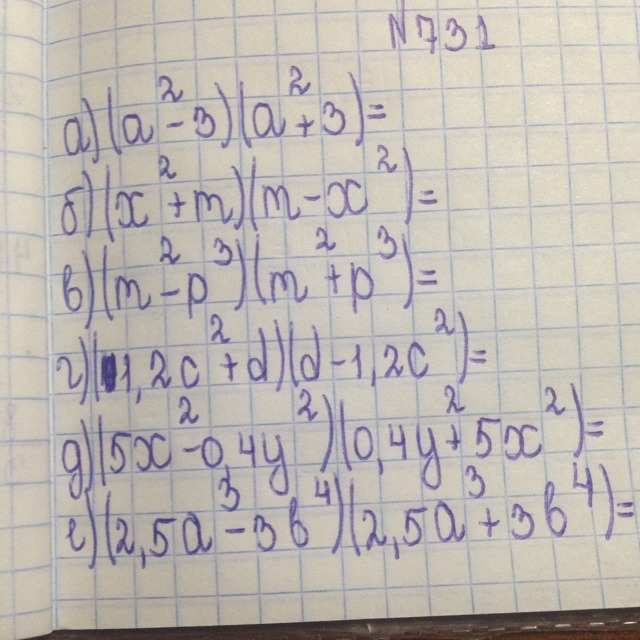 №731
а) (a² - 3)(a² + 3) =
б) (x² + m)(m - x²) =
в) (m² - p³)(m² + p³) =
г) (1,2c² + d)(d - 1,2c²) =
д) (5x² - 0,4y²)(0,4y² + 5x²) =
е) (2,5a³ - 3b⁴)(2,5a³ + 3b⁴) =